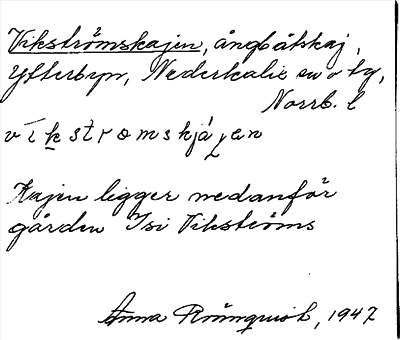 Vikströmskajen, ångbåtskaj,
Ytterbyn, Nederkalix sn o tg,
Norrb. l
vīkstromskájen
Kajen ligger nedanför
gården Isi Vikströms
Anna Rönnqvist, 1947